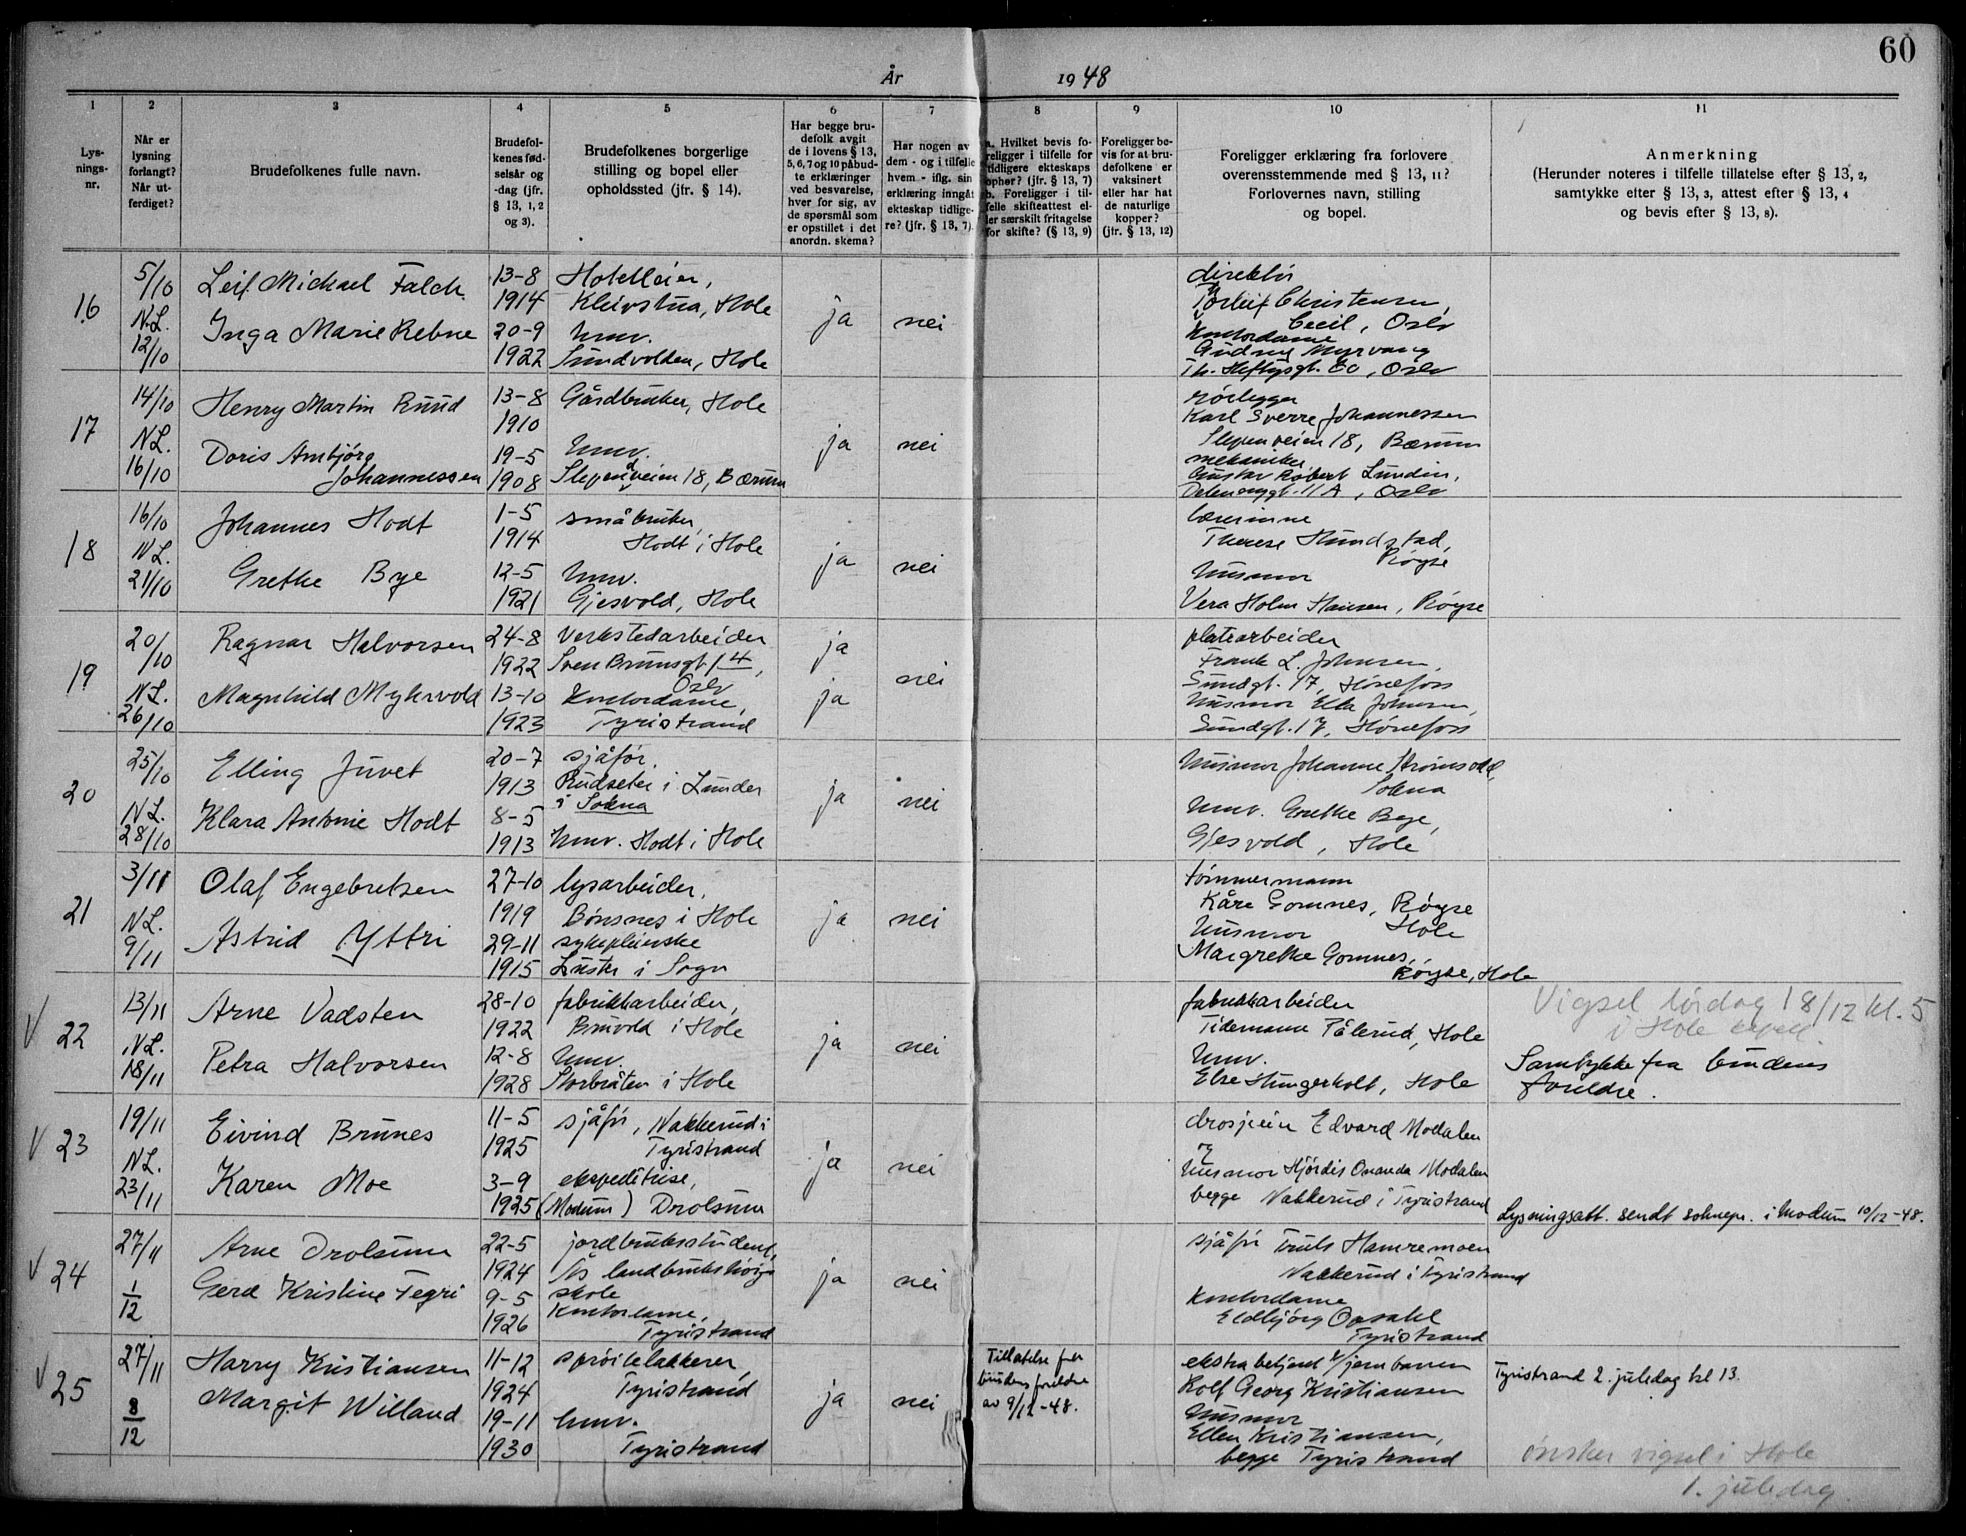 60
År 1948
1 2 3 4 5 6 7 8 9 10 11
Lys-
nings-
nr.
Når er
lysning
forlangt?
Når ut-
ferdiget?
Brudefolkenes fulle navn.
Brudefol-
kenes fød-
selsår og
-dag (jfr.
§ 13, 1, 2
og 3).
Brudefolkenes borgerlige
stilling og bopel eller
opholdssted (jfr. § 14).
Har begge bru-
defolk avgit
de i lovens § 13,
5, 6, 7 og 10 påbud-
te erklæringer
ved besvarelse,
hver for sig, av
de spørsmål som
er opstillet i det
anordn. skema?
Har nogen av
dem - og i tilfelle
hvem - iflg. sin
erklæring inngått
ekteskap tidlige-
re? (jfr. § 13, 7).
a. Hvilket bevis fo-
religger i tilfelle for
tidligere ekteskaps
ophør? (jfr. § 13, 7)
b. Foreligger i til-
felle skifteattest el-
ler særskilt fritagelse
for skifte? (§ 13, 9)
Foreligger be-
vis for at bru-
defolkene er
vaksinert
eller har hat
de naturlige
kopper?
(jfr. § 13, 12)
Foreligger erklæring fra forlovere
overensstemmende med § 13, 11?
Forlovernes navn, stilling
og bopel.
Anmerkning
(Herunder noteres i tilfelle tillatelse efter § 13, 2,
samtykke efter § 13, 3, attest efter § 13, 4
og bevis efter § 13, 8).
16
5/10
N.L.
12/10
Leif Michael Falch
Inga Marie Rebne
13-8
1914
20-9
1922
Hotelleier,
Kleivstua, Hole
hmv.
Sundvolden, Hole
ja
nei
direktør
Torleif Christensen,
Cecil, Oslo
kontordame
Gudny Myrvang
Th. Heftysgt. 60, Oslo
17
14/10
NL.
16/10
Henry Martin Ruud
Doris Ambjørg
Johannessen
13-8
1910
19-5
1908
Gårdbruker, Hole
hmv.
Slependveien 18, Bærum
ja
nei
rørlegger
Karl Sverre Johannessen
Slepenveien 18, Bærum
mekaniker
Gustav Robert Lundin,
11 A, Oslo
18
16/10
NL.
21/10
Johannes Hodt
Grethe Bye
1-5
1914
12-5
1921
småbruker,
Hodt i Hole
hmv.
Gjesvold, Hole
ja
nei
lærerinne
Therese Hundstad,
Røyse
husmor
Vera Holm Hansen, Røyse
19
20/10
NL.
26/10
Ragnar Halvorsen
Magnhild Myhrvold
24-8
1922
13-10
1923
Verkstedarbeider
Sven Brunsgt. 14,
Oslo
kontordame,
Tyristrand
ja
ja
nei
platearbeider
Frank L. Johnsen,
Sundgt. 17, Hønefoss
husmor Ella Johnsen,
Sundgt. 17, Hønefoss
20
25/10
NL.
28/10
Elling Juvet
Klara Antonie Hodt
20-7
1913
8-5
1913
sjåfør,
Rudseter i Lunder
i Sokna
hmv. Hodt i Hole
ja
nei
husmor Johanne Strømsodd,
Sokna
hmv. Grethe Bye,
Gjesvold, Hole
21
3/11
NL.
9/11
Olaf Engebretsen
Astrid Yttri
27-10
1919
29-11
1915
lysarbeider,
Bønsnes i Hole
sykepleierske
Luster i Sogn
ja
nei
tømmermann
Kåre Gomnes, Røyse
Hole
husmor
Margrethe Gomnes,
Røyse, Hole
V 22
13/11
NL.
18/11
Arne Vadsten
Petra Halvorsen
28-10
1922
12-8
1928
fabrikkarbeider,
i Hole
hmv.
Storbråten i Hole
ja
nei
fabrikkarbeider
Tidemann Pålerud, Hole
hmv.
Else Hungerholt, Hole
Vigsel lørdag 18/12 kl. 5
i Hole
Samtykke fra brudens
foreldre.
V 23
19/11
NL.
23/11
Eivind Brunes
Karen Moe
11-5
1925
3-9
1925
sjåfør, Nakkerud i
Tyristrand
ekspeditrise,
(Modum) Drolsum
ja
nei
drosjeeier Edvard Modalen
og
husmor Hjørdis Modalen
begge Nakkerud i Tyristrand
Lysningsatt. sendt soknepr. i Modum 10/12-48.
V 24
27/11
1/12
Arne Drolsum
Gerd Kristine Tegri
22-5
1924
9-5
1926
jordbruksstudent,
Ås landbrukshøig-
skole
kontordame,
Tyristrand
ja
nei
sjåfør Truls Hamremoen
Nakkerud i Tyristrand
kontordame
Eldbjørg Opsahl
Tyristrand
V 25
27/11
8/12
Harry Kristiansen
Margit Willand
11-12
1924
19-11
1930
sprøitelakkerer,
Tyristrand
hmv.
Tyristrand
ja
nei
Tillatelse fra
brudens foreldre
av 9/12-48.
ekstrabetjent v/jernbanen
Rolf Georg Kristiansen
husmor
Ellen Kristiansen,
begge Tyristrand
Tyristrand 2. juledag kl 13.
ønsker vigsel i Hole
1. juledag.